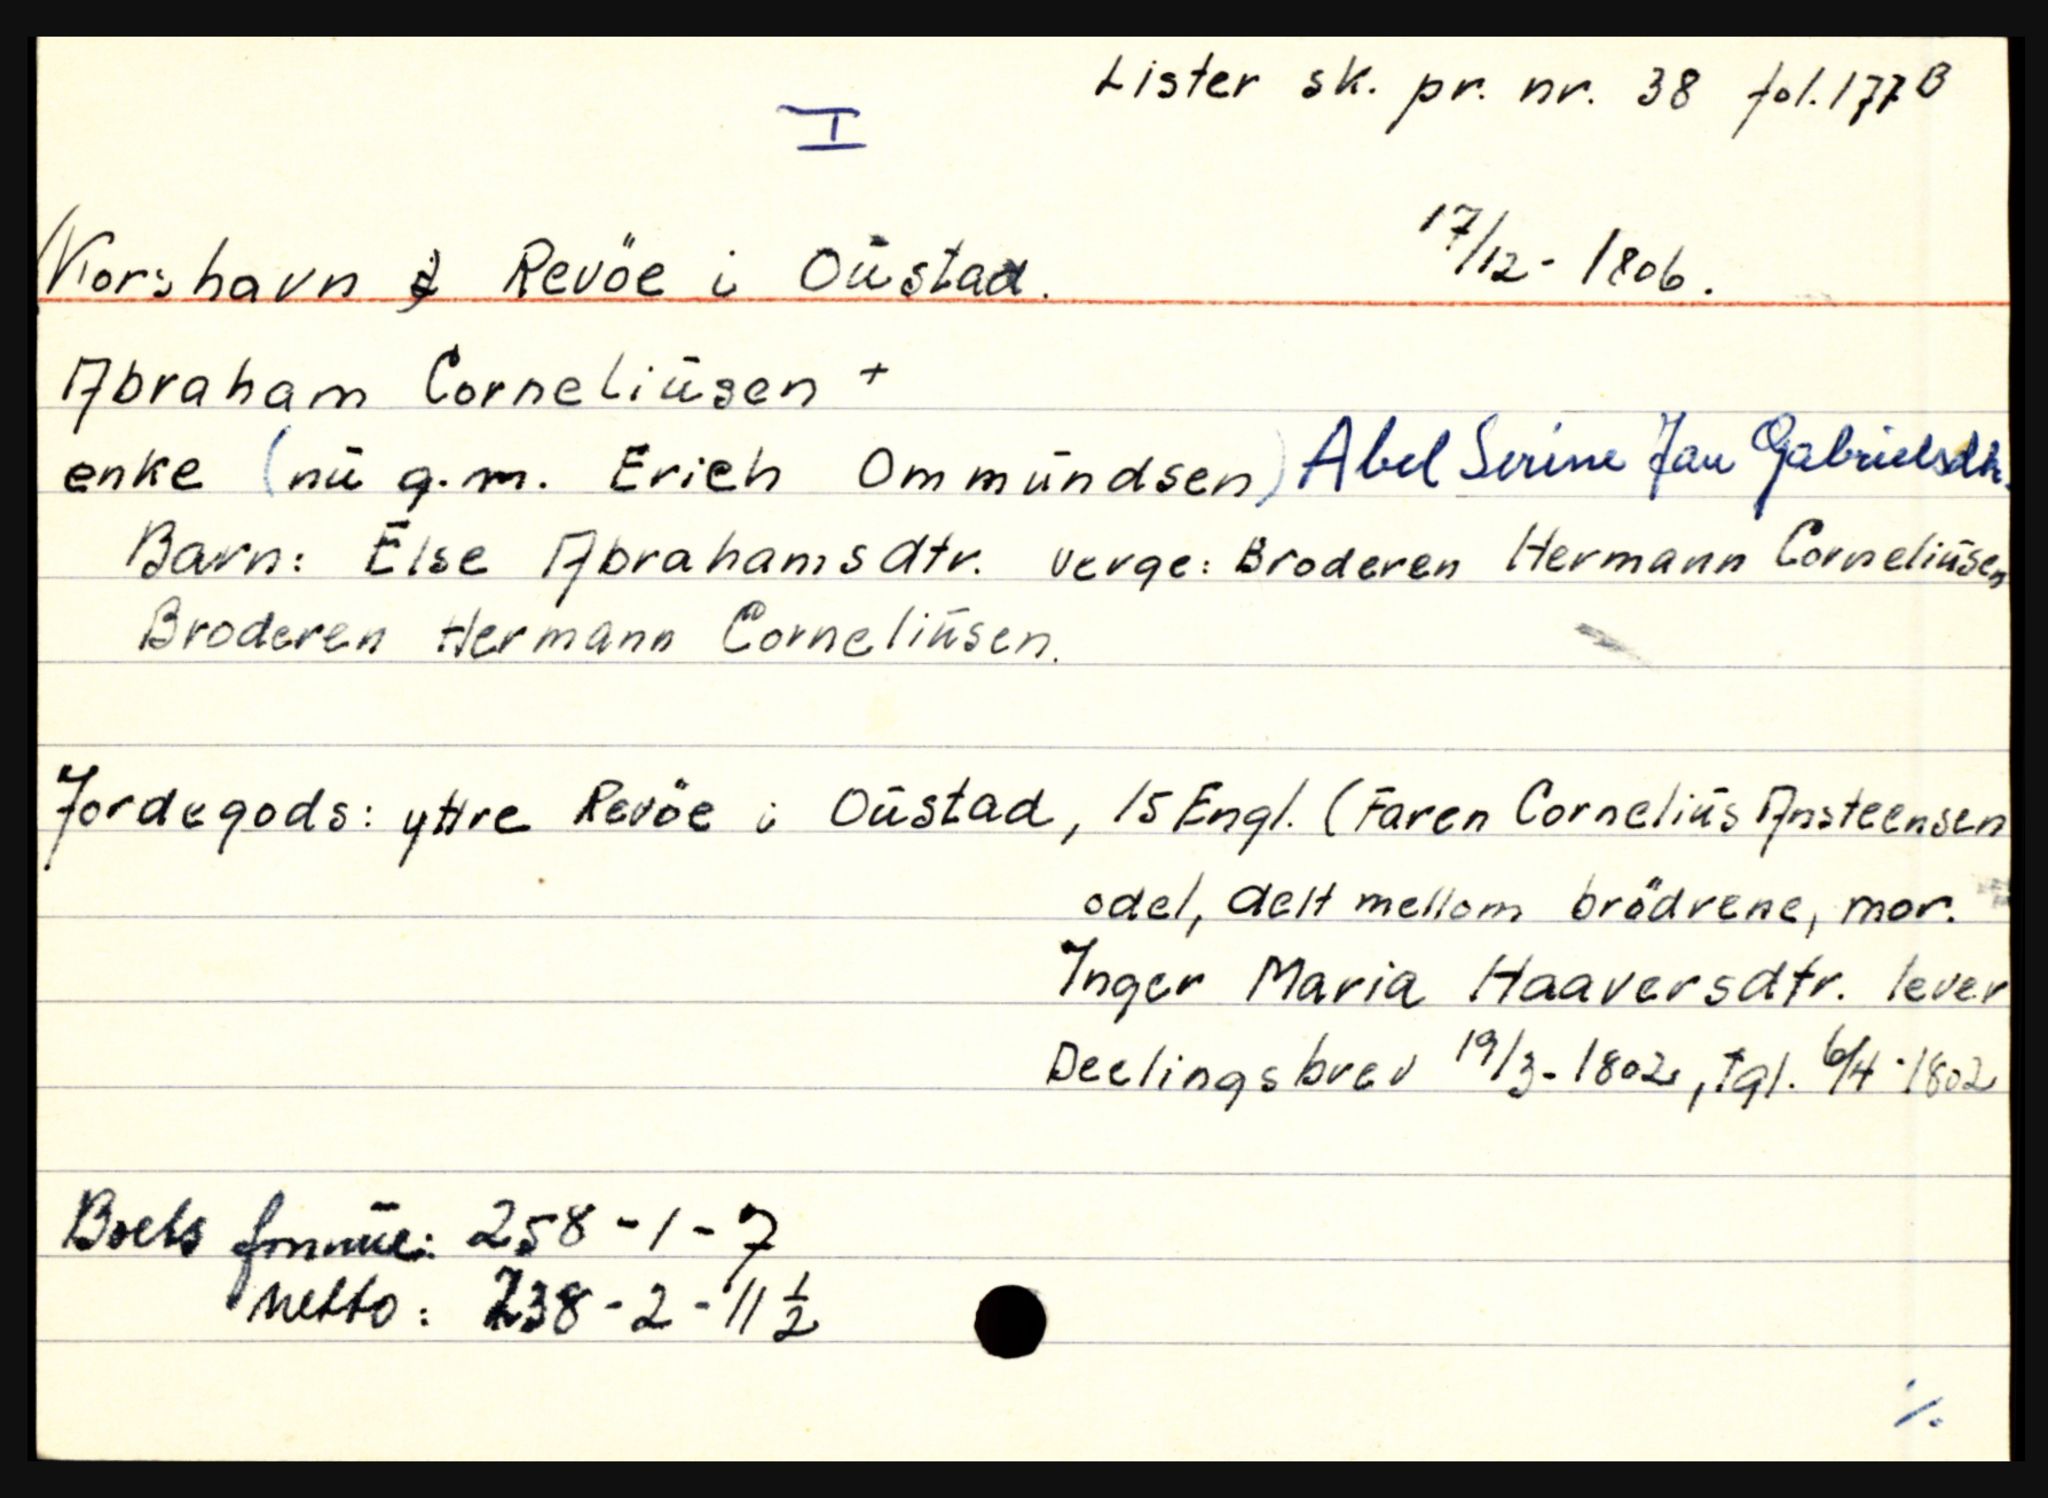 Lister sk. pr. nr. 38 fol. 177 B
I
Korshavn i Revöe i Oustad. 17/12 - 1806.
Abraham Corneliusen +
enke (nu g.m. Erich Ommundsen) Abel Serine Gabrielsdtr.
Barn: Else Abrahamsdtr. verge: Broderen Hermann Corneliusen
Broderen Hermann Corneliusen.
Jordegods: yttre Revöe i Oustad, 15 Engl. (Faren Cornelius Ansteensen
odel, delt mellom brödrene, mor.
Inger Maria Haaversdtr. lever
Deelingsbrev 19/3 - 1802, tgl. 6/4 - 1802
Boets formue: 258 - 1 - 7
netto: 238 - 2 - 11 1/2
./.